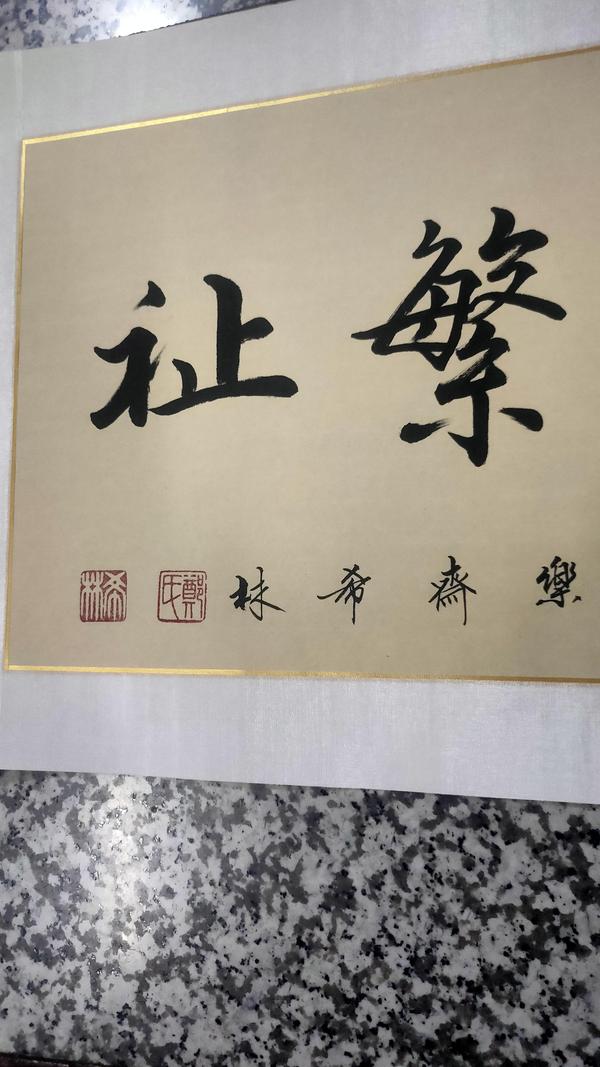 繁祉
樂齋希林
鄭氏
希林